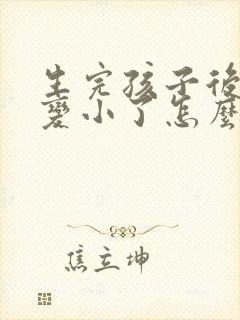 生完孩子後
變小了怎麼
焦立坤